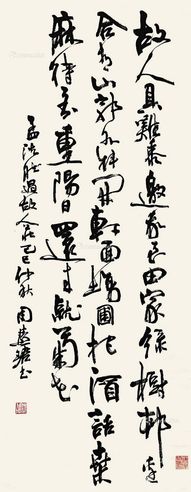 故人具雞黍邀我至田家綠樹邨邊
合青山郭外斜開軒面場圃把酒話桑
麻待到重陽日還來就菊花
孟浩然過故人莊己巳仲秋周慧珺書